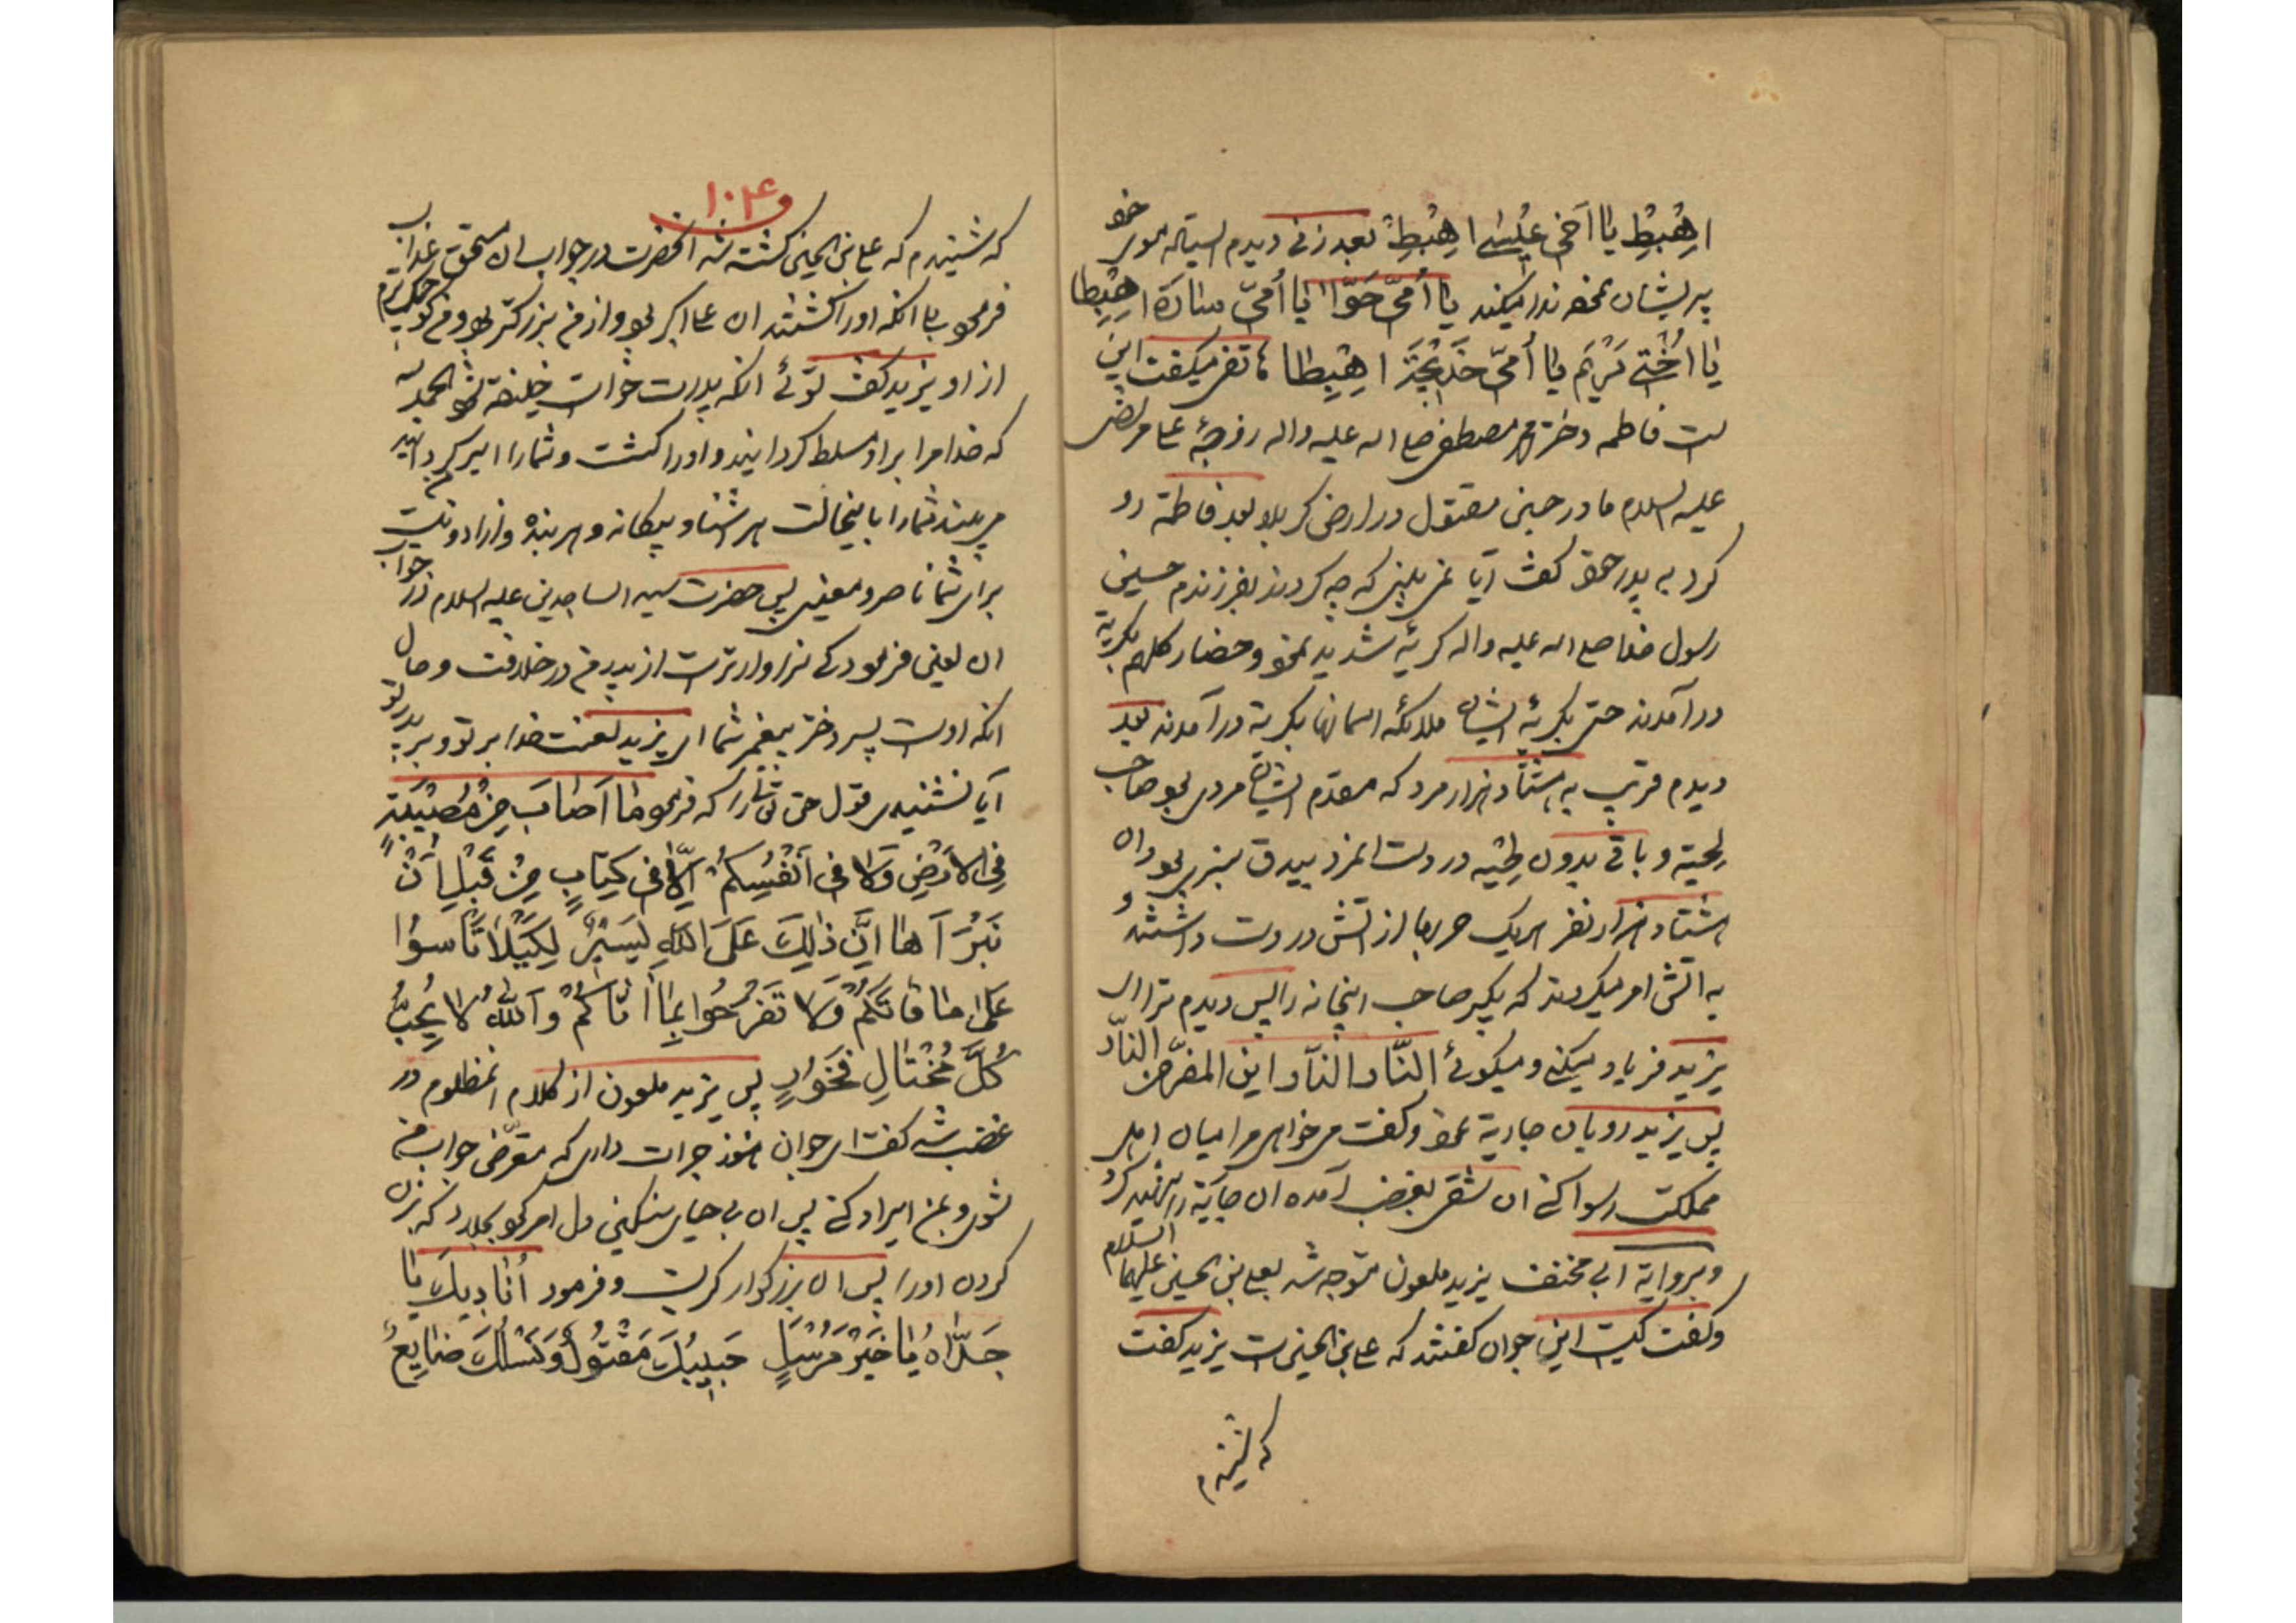 اِهْبِطْ یا اَخی عیسی اِهْبِطْ بعد زنی دیدم ایستاله موی خو
پریشان نموه ندا میکند یا اُمّی حَوّا یا اُمّی سارَة اِهْبِطا
یا اُخْتی مَرْیَم یا اُمّی خَدیجَة اِهْبِطا هاتفی میگفت این
ست فاطمه دختر محمد مصطفی صلی اله علیه واله زوجهٔ علی مرتضی
علیه السلام مادر حسین مقتول در ارض کربلا بعد فاطمه رو
کرد به پدر خو گفت آیا نمی بینی که چه کردند بفرزندم حسین
رسول خدا صلی اله علیه واله گریهٔ شدید نمو و حضار کلهم بگریه
درآمدند حتی بگریهٔ ایشان ملائکهٔ اسمانها بگریه درآمدند بعد
دیدم قریب به هشتاد هزار مرد که مقدم ایشان مردی بو صاحب
لحیه و باقی بدون لحیه در دست انمرد بیدق سبزی بود و ان
هشتاد هزار نفر هریک حربها از اتش در دست داشتند و
به اتش امر میکردند که بگیر صاحب اینخانه را پس دیدم ترا ای
یزید فریاد میکنی و میگوئی النّار النّار این المفرّ من النّار
پس یزید رو بان جاریه نمو و گفت می خواهی مرا میان اهل
مملکت رسوا کنی ان شقی بغضب آمده ان جاریه را شهید کرد
و بروایة ابی مخنف یزید ملعون متوجه شد بعلی بن الحسین علیهما السلام
و گفت کیست این جوان گفتند که علی بن الحسین است یزید گفت
که شنیدم
۱۰۴
که شنیدم که علی بن الحسین کشته شد انحضرت در جواب ان مستحق عذاب
فرمو بلی انکه اورا کشتند ان علی اکبر بو و از من بزرگتر بو و من کوچکترم
از او یزید گفت توئی انکه پدرت خواست خلیفه شو الحمد لله
که خدا مرا بر او مسلط گردانید و اورا کشت و شمارا اسیر گردانید
می بینند شمارا باینحالت هر اشنا و بیگانه و هر بنده و ازاد و نیست
برای شما ناصر و معینی پس حضرت سید الساجدین علیه السلام در جواب
ان لعین فرمود کی سزاوارترست از پدر من در خلافت و حال
انکه اوست پسر دختر پیغمبر شما ای یزید لعنت خدا بر تو و بر پدر تو
آیا نشنیدی قول حق تعالی را که فرمو ما اَصابَ مِنْ مُصیبَةٍ
فِی الاَرْضِ وَلا فی اَنْفُسِکُمْ اِلّا فی کِتابٍ مِنْ قَبْلِ اَنْ
نَبْرَاَها اِنَّ ذلِکَ عَلَی اللّهِ یَسیرٌ لِکَیْلا تَاْسَوْا
عَلی ما فاتَکُمْ وَلا تَفْرَحُوا بِما اتاکُمْ وَاللّهُ لا یُحِبُّ
کُلَّ مُخْتالٍ فَخُورٍ پس یزید ملعون از کلام انمظلوم در
غضب شد گفت ای جوان هنوز جرات داری که متعرض جواب من
شوی و بمن ایراد کنی پس ان بی حیای سنگین دل امر کرد بجلاد که بزن
گردن اورا پس ان بزرگوار گریست و فرمود اُنادیکَ یا
جَدّاهُ یا خَیْرَ مُرْسَلٍ حَبیبُکَ مَقْتُولٌ وَنَسْلُکَ ضایِعُ